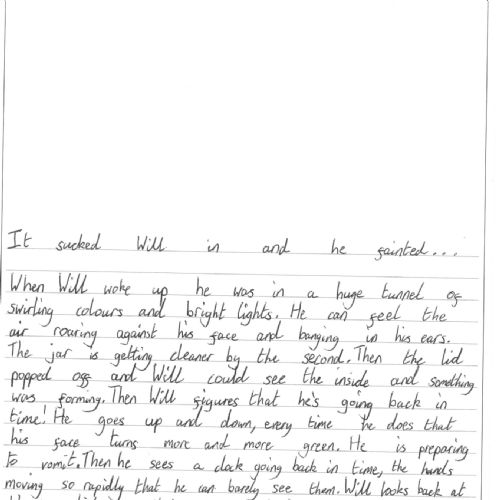 It sucked Will in and he fainted...
When Will woke up he was in a huge tunnel of
swirling colours and bright lights. He can feel the
air roaring against his face and banging in his ears.
The jar is getting cleaner by the second. Then the lid
popped off and Will could see the inside and something
was forming. Then Will figures that he's going back in
time! He goes up and down, every time he does that
his face turns more and more green. He is preparing
to vomit. Then he sees a clock going back in time, the hands
moving so rapidly that he can barely see them. Will looks back at